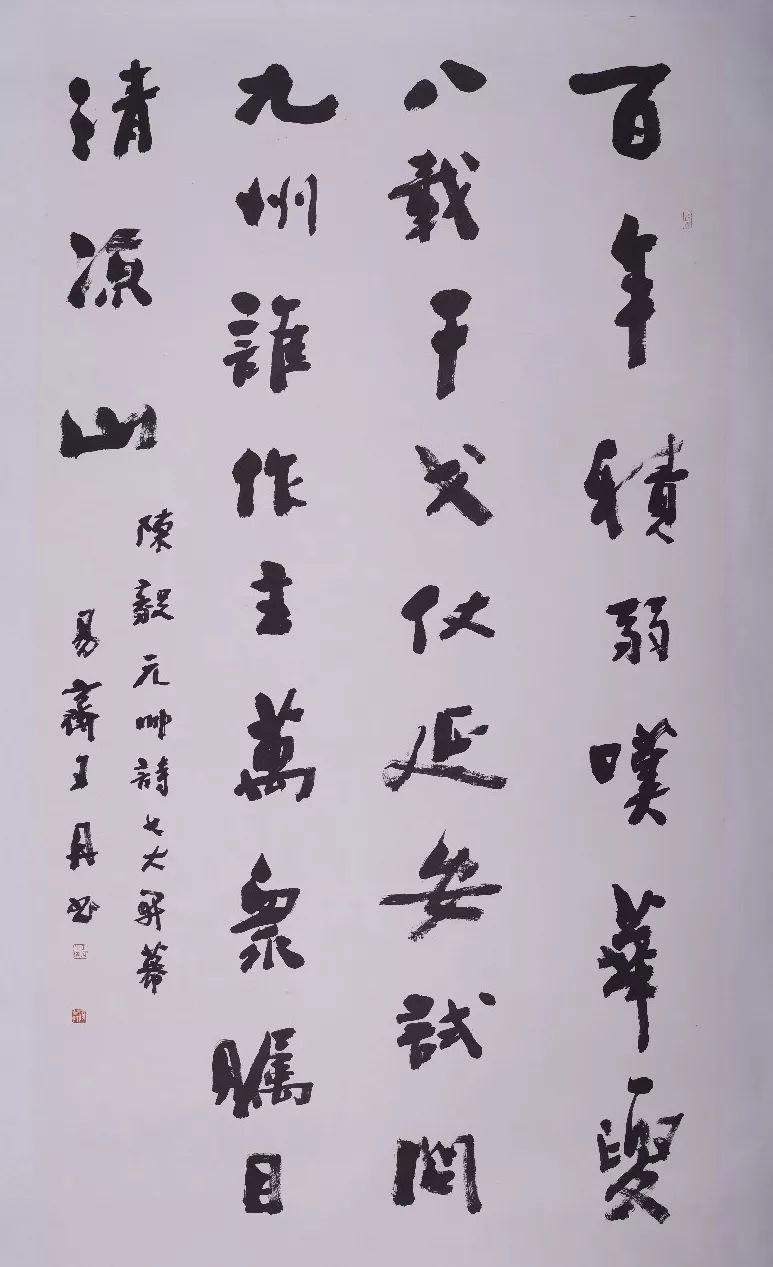 百年積弱嘆華夏
八載干戈仗延安試問
九州誰作主萬衆瞩目
清凉山
陳毅元帥詩七大開幕
易齋王丹書